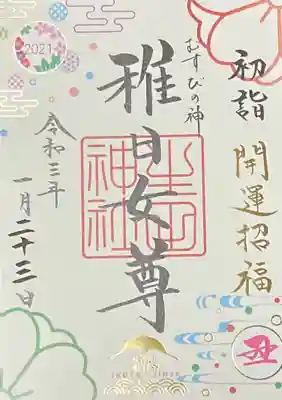 初詣
開運招福
むすびの神
稚日女尊
生田神社
令和三年
一月二十三日
2021
丑
IKUTA JINJA